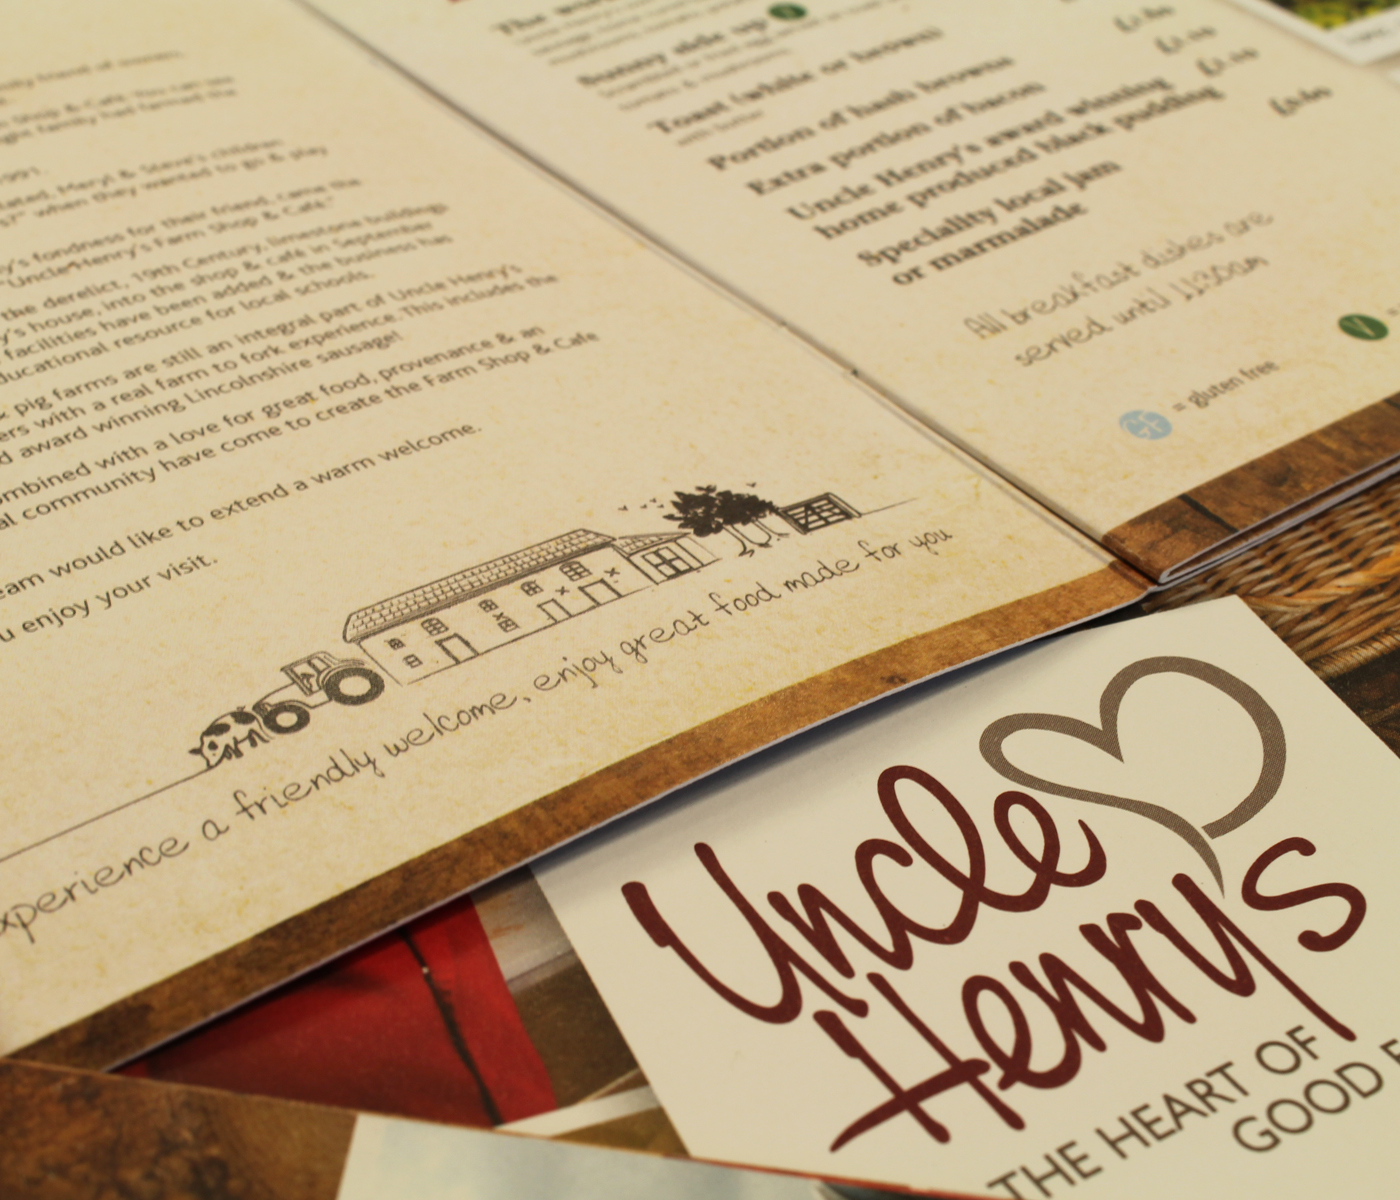 ly friend of
Shop & Café. You can see
family had farmed the
1991.
ated. Meryl & Steve's children
when they wanted to go & play
y's fondness for their friend, came the
"Uncle Henry's Farm Shop & Café."
the derelict, 19th Century, limestone buildings,
y's house, into the shop & café in September
facilities have been added & the business has
ducational resource for local schools.
& pig farms are still an integral part of Uncle Henry's
ers with a real farm to fork experience. This includes the
d award winning Lincolnshire sausage!
ombined with a love for great food, provenance & an
al community have come to create the Farm Shop & Cafe
eam would like to extend a warm welcome.
u enjoy your visit.
xperience a friendly welcome, enjoy great food made for you
Sunny side up
Toast (white or brown)
with butter
Portion of hash browns
Extra portion of bacon
Uncle Henry's award winning
home produced black pudding
Speciality local jam
or marmalade
All breakfast dishes are
served until 11:30am
V
gf = gluten free
Uncle
Henry's
THE HEART OF
GOOD F